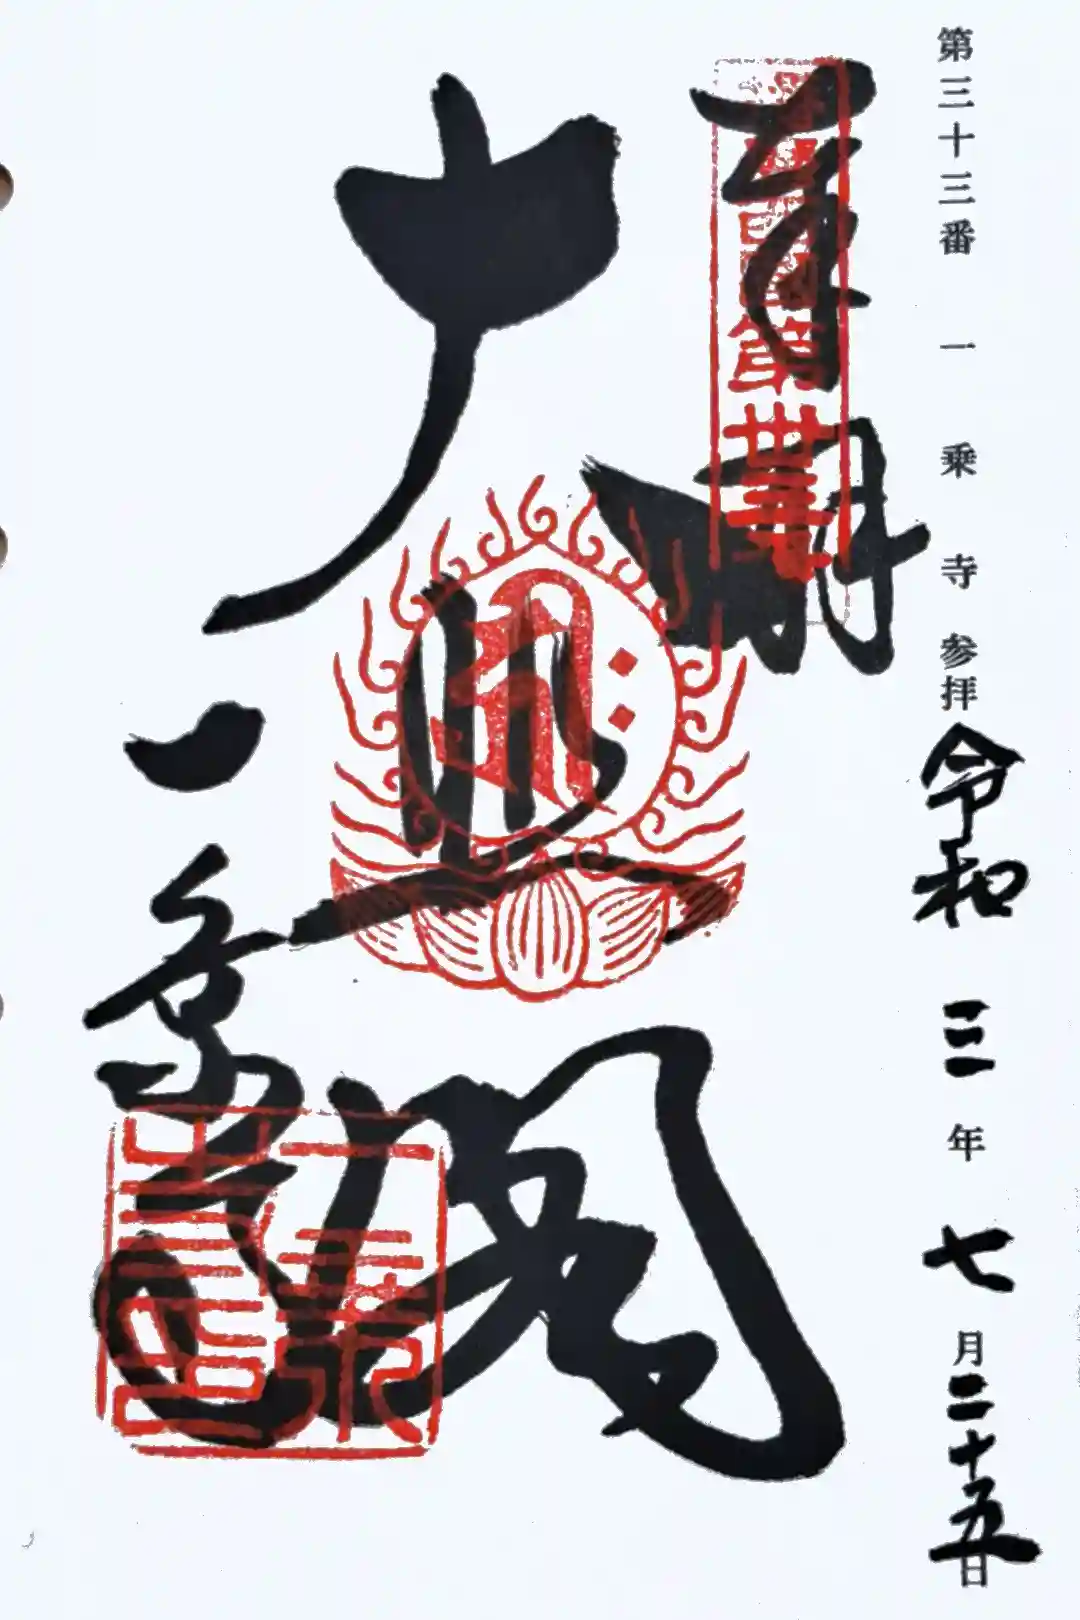 第三十三番 一乗寺 参拝 令和三年七月二十五日
奉拝
大悲閣
一乗寺